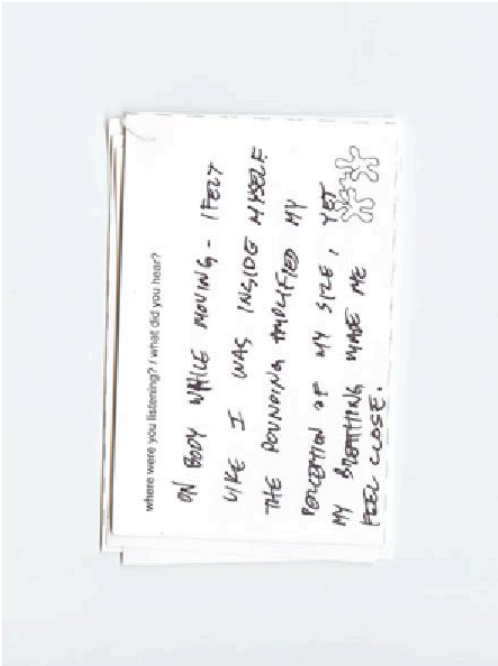 where were you listening? / what did you hear?
ON BODY WHILE MOVING - I FELT
LIKE I WAS INSIDE MYSELF
THE POUNDING AMPLIFIED MY
PERCEPTION OF MY SIZE / YET
MY BREATHING MADE ME
FEEL CLOSE.